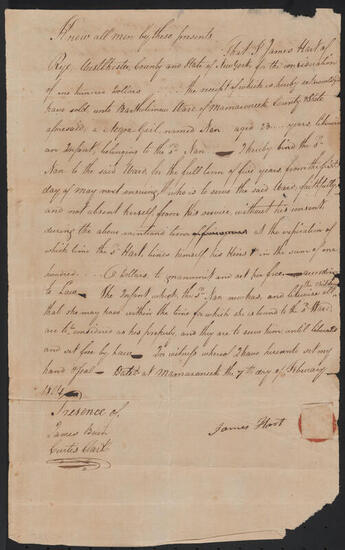 Know all men by these presents
That I James Hart of
Rye, Westchester County and State of New York for the consideration
of one hundred Dollars the receipt of which is hereby
have sold unto Bartholomew Ware of Mamaroneck County & State
aforesaid, a Negro Garl, named Nan aged 23 years,
an Infant, belonging to the sd. Nan I hereby bind the sd.
Nan to the said Ward, for the full term of five years from the first
day of may next ensuing, who is to serve the said Ward, faithfully
and not absent herself from his service, without his consent
during the above mentions term at the expiration of
which time the sd. Hart binds himself his Heirs & in the sum of one
Dollars, to manumit and set her free according
to Law The Infant which the sd. Nan and likewise all the children
that she may have within the time for which she is bound to the sd. Ward
are to be considered as his and they are to serve him until
and set free by Law In witness whereof I have hereunto set my
hand & Seal Dated at Mamaroneck the 7th day of February
Presence of
James
Curtis Hart
James Hart